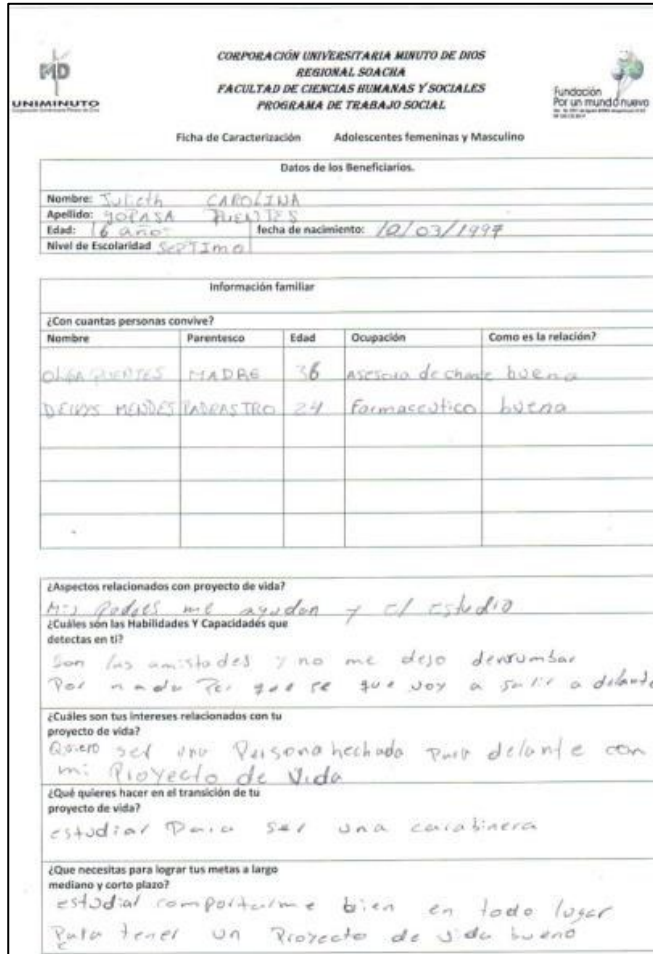 CORPORACIÓN UNIVERSITARIA MINUTO DE DIOS
REGIONAL SOACHA
FACULTAD DE CIENCIAS HUMANAS Y SOCIALES
PROGRAMA DE TRABAJO SOCIAL
UNIMINUTO
Fundación
Por un mundo nuevo
Ficha de Caracterización Adolescentes femeninas y Masculino
Datos de los Beneficiarios.
Nombre: Julieth CAROLINA
Apellido: JOPASA PUENTES
Edad: 16 años fecha de nacimiento: 10/03/1997
Nivel de Escolaridad SEPTIMO
Información familiar
¿Con cuantas personas convive?
Nombre Parentesco Edad Ocupación Como es la relación?
OLGA PUENTES MADRE 36 Asesora de chance buena
MENDES PADRASTRO 24 Farmaceutico buena
¿Aspectos relacionados con proyecto de vida?
Mis Padres me ayudan y el estudio
¿Cuáles son las Habilidades Y Capacidades que
detectas en ti?
Son las amistades y no me dejo derrumbar
Por nada Por que se que voy a salir a delante
¿Cuáles son tus intereses relacionados con tu
proyecto de vida?
Quiero ser una Persona hechada para delante con
mi Proyecto de Vida
¿Qué quieres hacer en el transición de tu
proyecto de vida?
estudiar Para ser una carabinera
¿Que necesitas para lograr tus metas a largo
mediano y corto plazo?
estudiar comportarme bien en todo lugar
Para tener un Proyecto de vida bueno